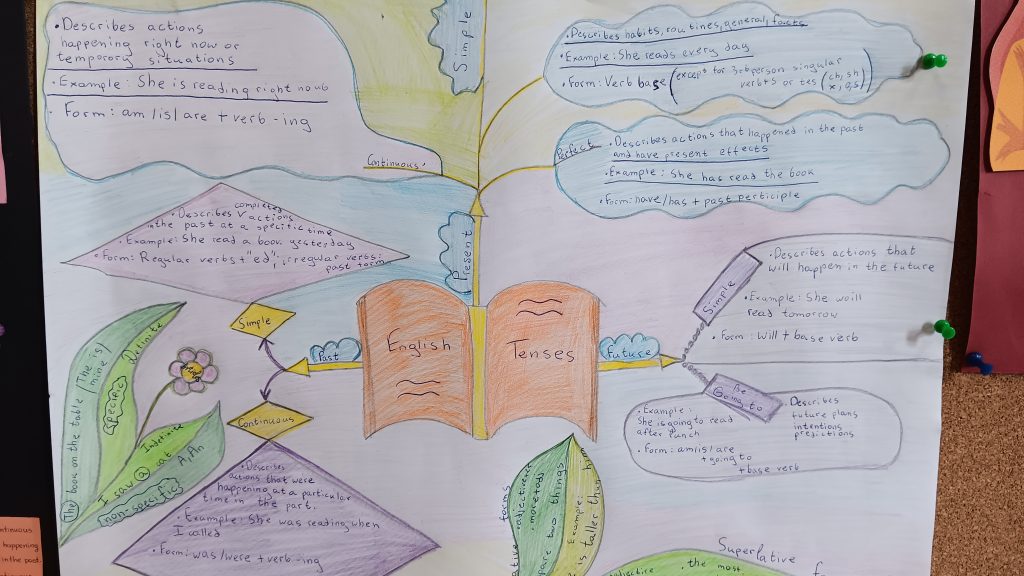 • Describes actions
happening right now or
temporory situations
• Example: She is reading right now
• Form: am/is/are + verb -ing
Continuous.
Simple
• Describes habits, routines, general facts
• Example: She reads every day
• Form: Verb base (except for 3rd person singular
verb+s or +es (ch, sh
x, s))
Perfect
• Describes actions that happened in the past
and have present effects
• Example: She has read the book
• Form: have/has + past perticiple
Present
completed
• Describes V actions
in the past at a specific time
• Example: She read a book yesterday
• Form: Regular verbs + "ed"; irregular verbs:
past form
Simple
Past
Continuous
• Describes
actions that were
happening at a particular
time in the part.
• Example: She was reading when
I called
• Form: was/were + verb -ing
English
Tenses
Future
Simple
• Describes actions that
will happen in the future
• Example: She will
read tomorrow
• Form: Will + base verb
Be
Going to
• Describes
future plans
intentions
predictions
• Example:
She is going to read
after lunch
• Form: am/is/are
+ going to
+ base verb
Definite
The book on the table / The
mine is
specific
Indefinite
A, An
I saw a cat
non-specific
forms
• adjective + er
• more + adj
two things
Example:
is taller than
Superlative
adjective
• the most
ntinuous
happening
in the past.